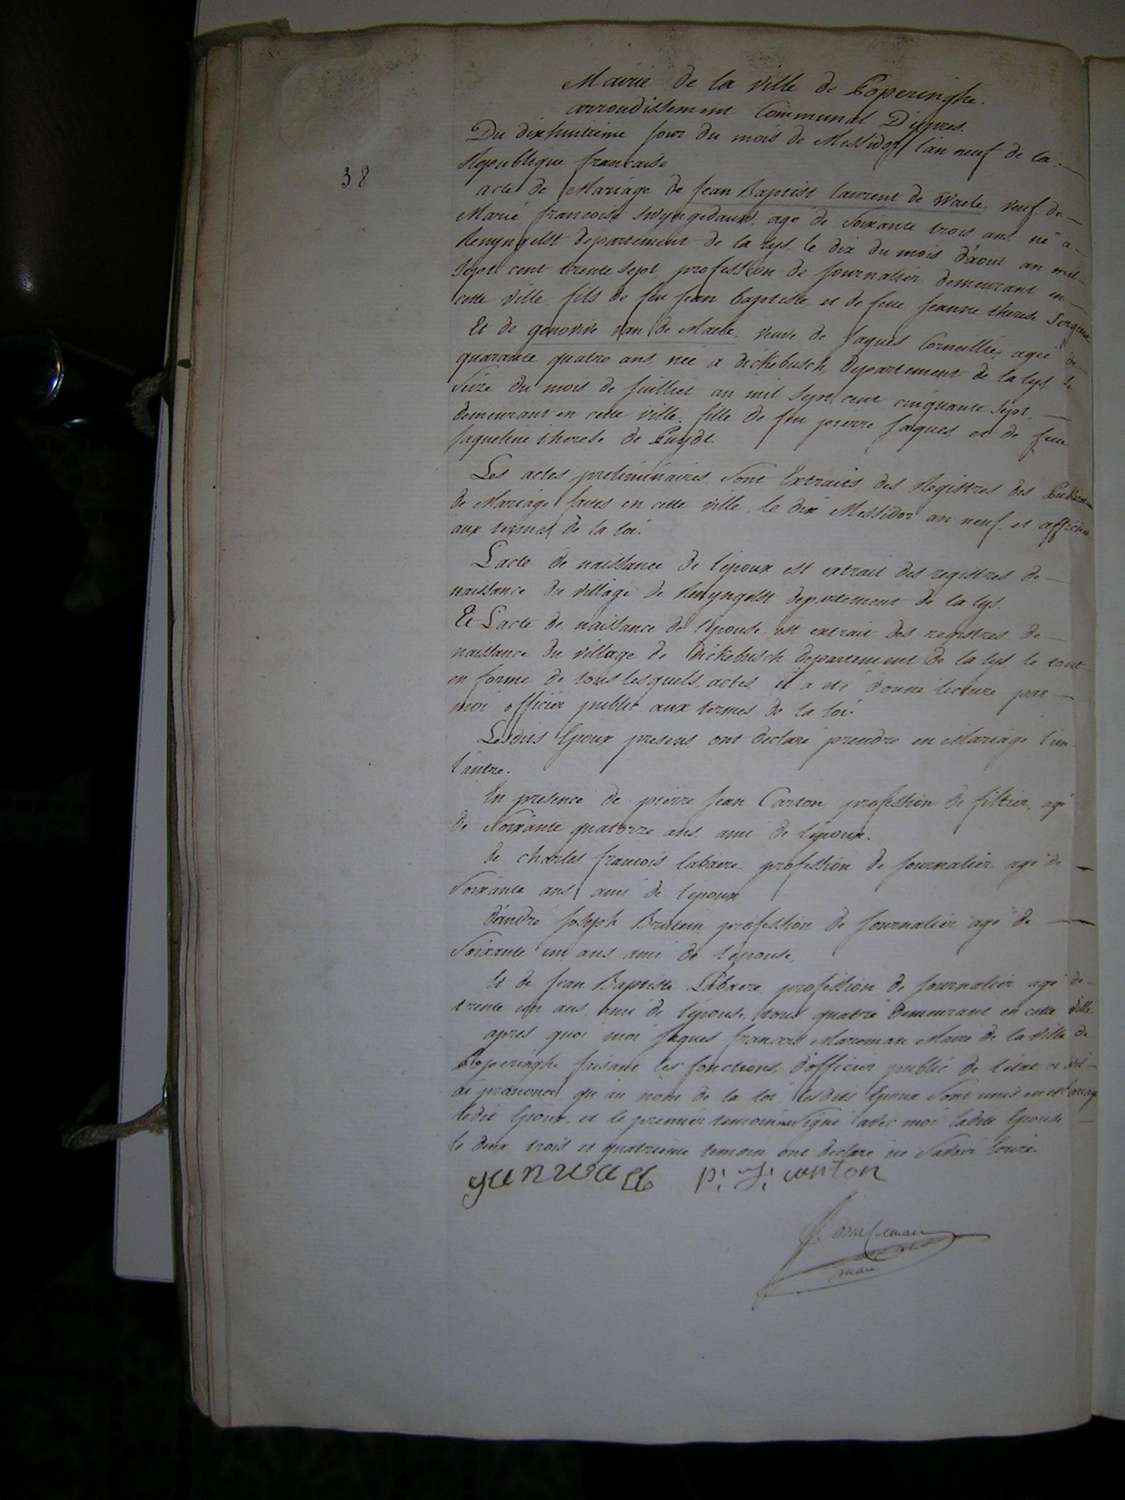 Mairie de la ville de Poperinghe.
arrondissement Communal D'ypres.
Du dixhuitieme jour du mois de Messidor l'an neuf de la
Republique francaise
38
acte de Mariage de Jean Baptist laurent de Waele, veuf de
Marie francoise Swyngedauw, agé de Soixante trois ans né a
Renyngelst departement de la Lys le dix du mois d'aout an mil
Sept cent trente sept profession de Journalier demeurant en
cette ville, fils de feu jean Baptiste et de feue jeanne therese
Et de genovive van de Maele, veuve de Jaques Corneillie, agée de
quarante quatre ans, née a Dickebusch departement de la lys le
Seize du mois de Juilliet an mil Sept cent cinquante Sept,
demeurant en cette ville, fille de feu pierre jaques et de feue
jaqueline therese de Puydt.
Les actes preliminaires Sont Extraits des Registres des
de Mariage faites en cette ville le dix Messidor an neuf, et affichés
aux termes de la loi.
L'acte de naissance de l'epoux est extrait des registres de
naissance du village de Renyngelst departement de la lys.
Et L'acte de naissance de l'epouse est extrait des registres de
naissance du village de Dickebusch departement de la lys le tout
en forme de tous lesquels actes il a eté donné lecture par
moi officier public aux termes de la loi.
Lesdits Epoux presens ont declaré prendre en Mariage l'un
l'autre.
En presence de pierre Jean Carton profession de filtier, agé
de Soixante quatorze ans ami de l'epoux.
de charles francois labaere profession de journalier agé de
Soixante ans ami de l'epoux
d'andré joseph profession de journalier agé de
Soixante un ans ami de l'epouse,
Et de Jean Baptiste Labaere profession de journalier agé de
trente un ans ami de l'epouse, tous quatre demeurant en cette ville
apres quoi moi jaques francois Maire de la ville de
Poperinghe faisant les fonctions d'officier public de l'etat civil
ai prononcé qu'au nom de la loi lesdits Epoux Sont unis en mariage
ledit Epoux, et le premier temoin Signé avec moi ladite Epouse
le deux trois et quatrieme temoin ont declaré ne Savoir Ecrire.
P: J: carton
maire